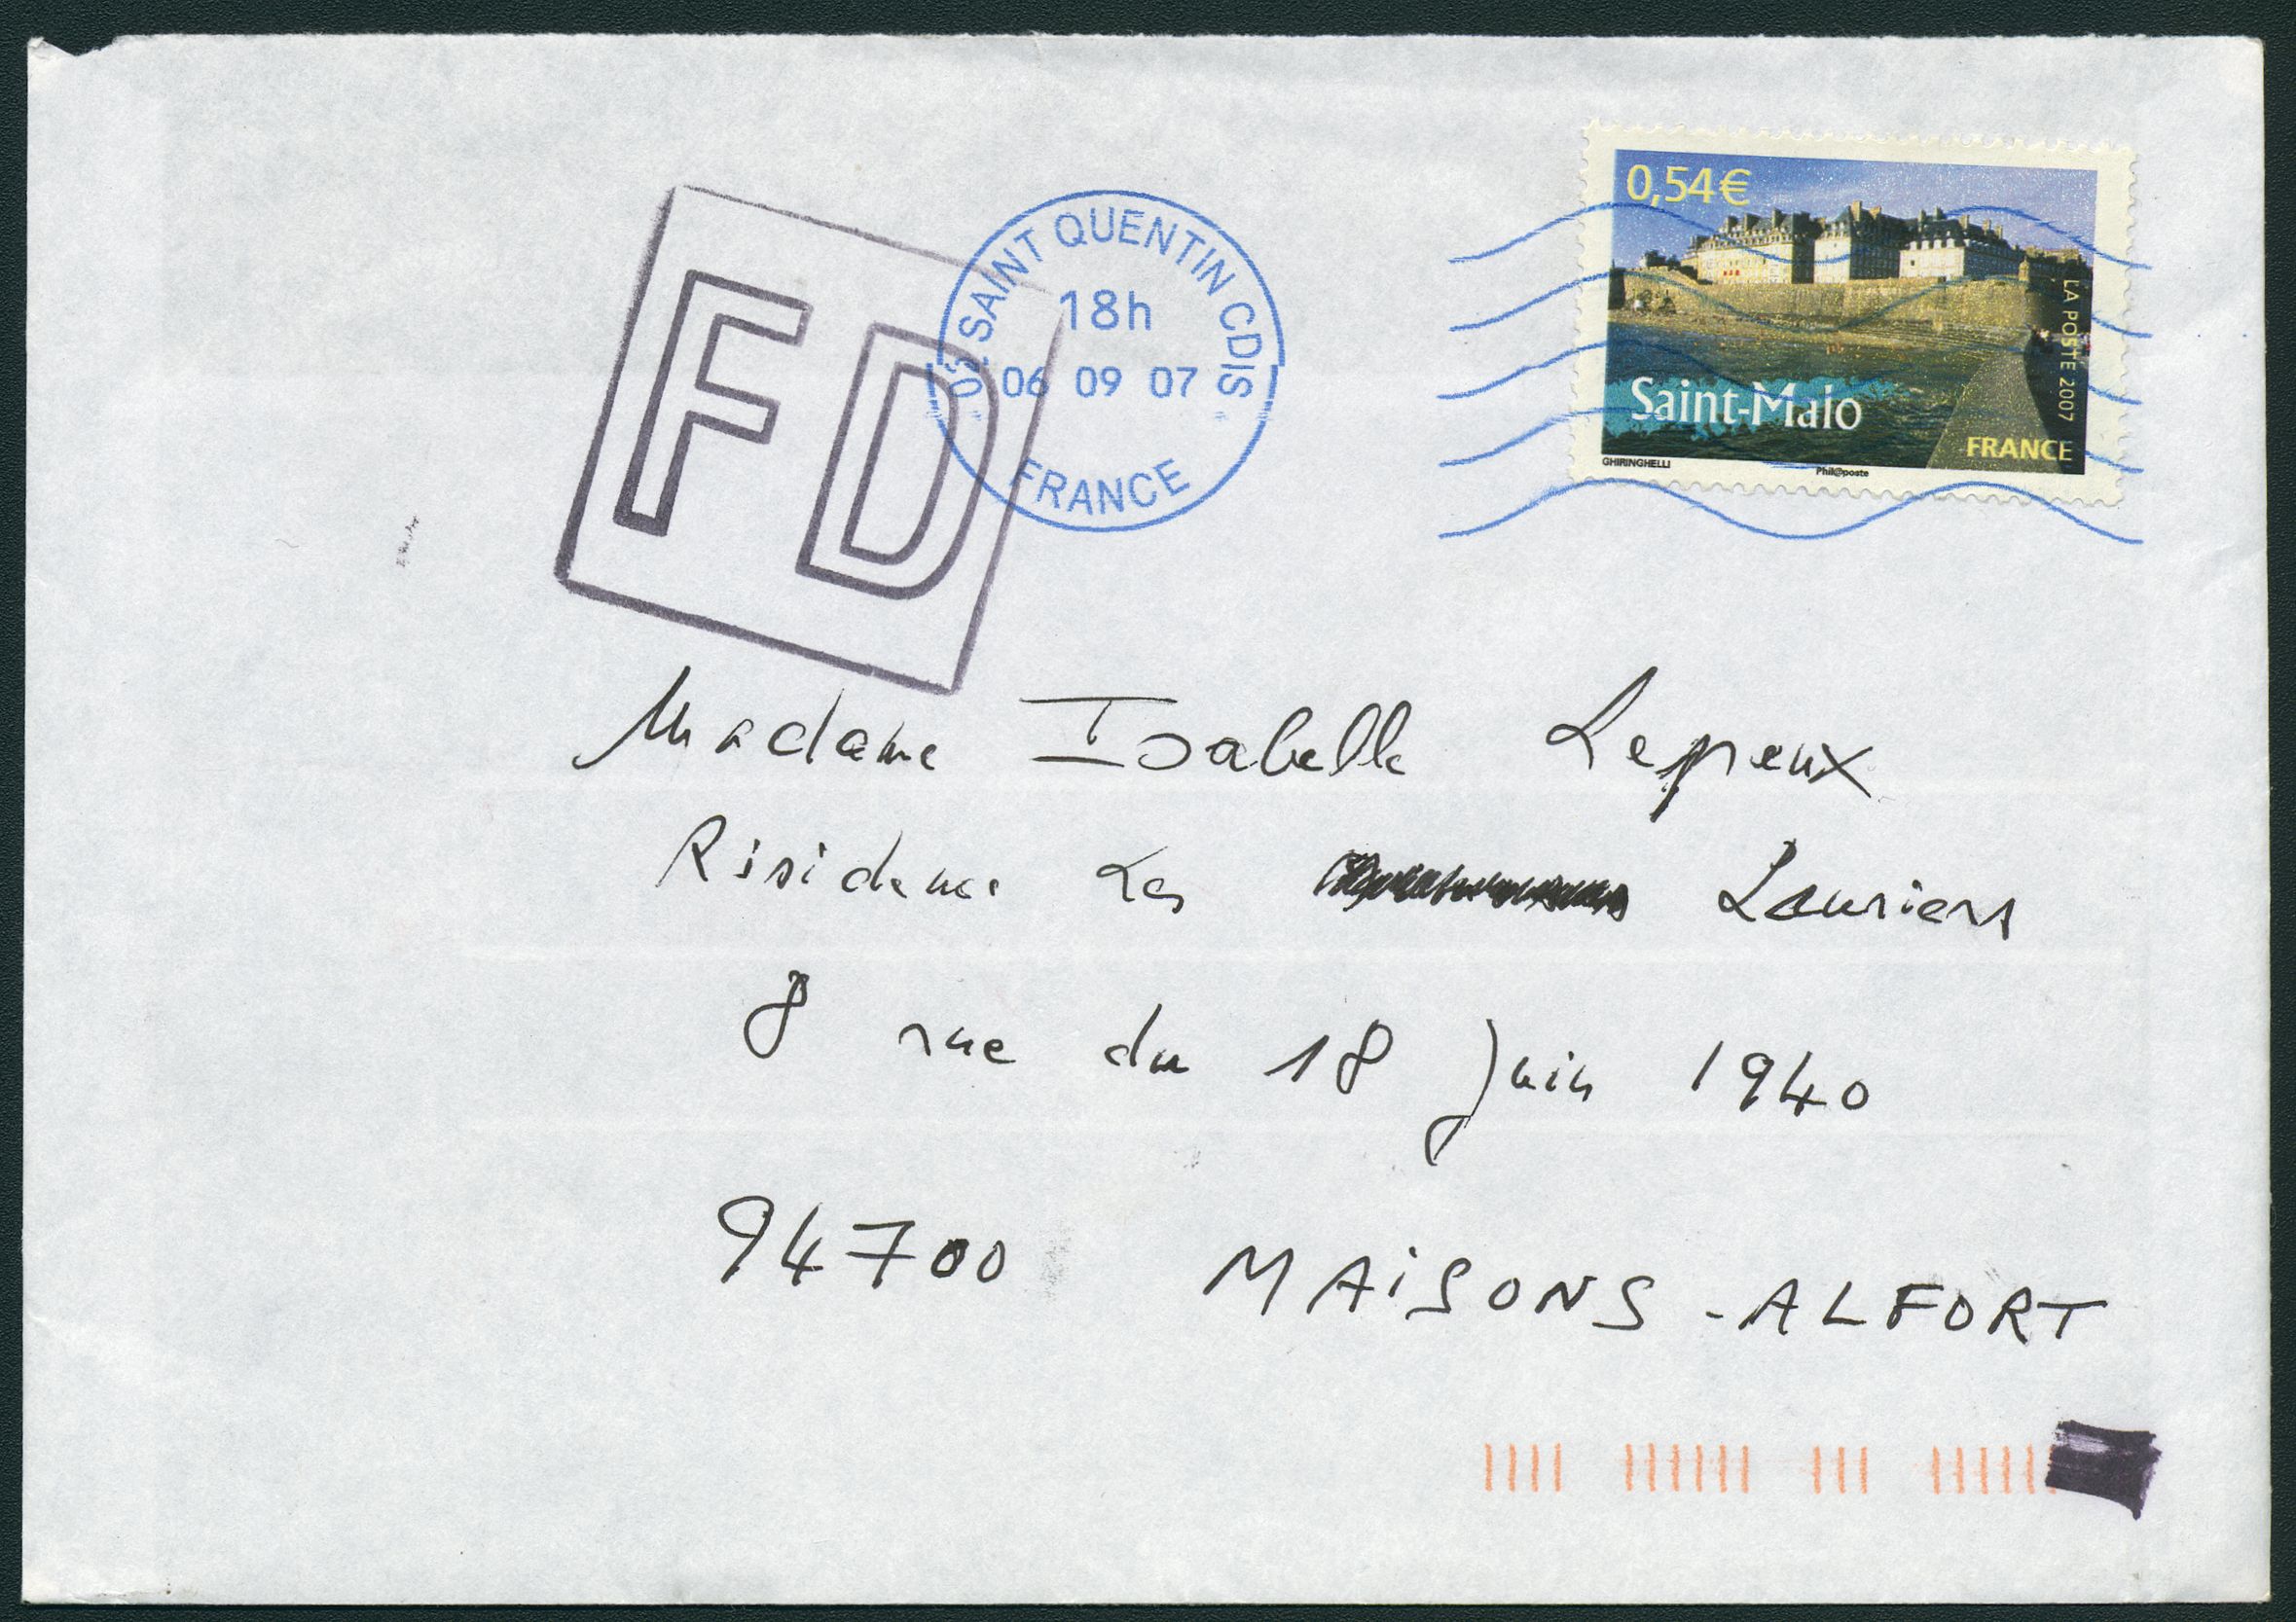 0,54€
LA POSTE 2007
Saint-Malo
FRANCE
GHIRINGHELLI
Phil@poste
02 SAINT QUENTIN CDIS
18h
06 09 07
FRANCE
FD
Madame Isabelle Lepeux
Résidence Les Lauriers
8 rue du 18 Juin 1940
94700 MAiSONS-ALFORT